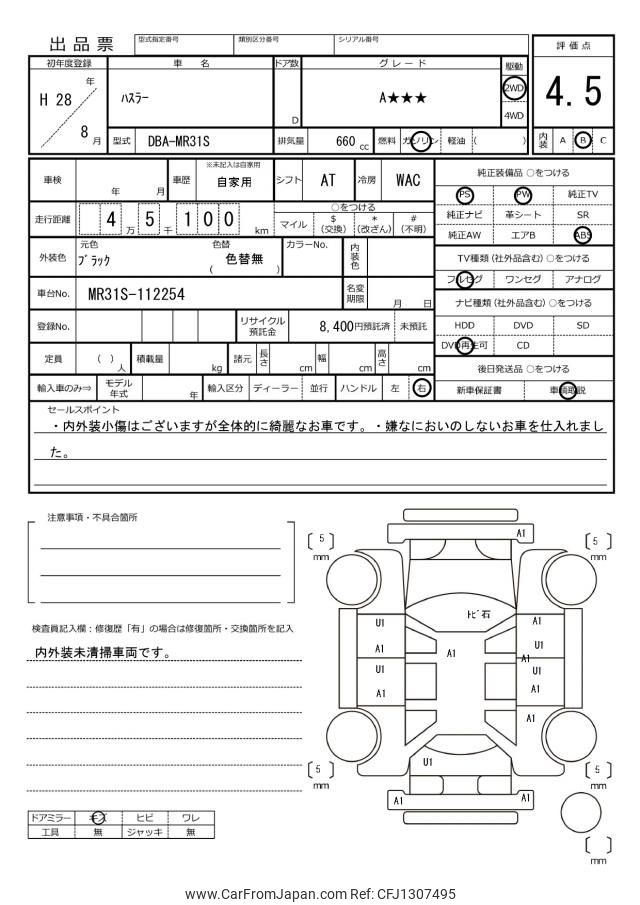 出品票
型式指定番号 類別区分番号 シリアル番号
評価点
4.5
内装 A B C
初年度登録 車名 ドア数 グレード 駆動
H 28 年 8 月
ハスラー
D
A★★★
2WD
4WD
型式 DBA-MR31S 排気量 660 cc 燃料 ガソリン 軽油 ( )
車検 年 月 車歴 ※未記入は自家用 自家用 シフト AT 冷房 WAC
走行距離 4 万 5 千 1 0 0 km
○をつける
マイル $ (交換) * (改ざん) # (不明)
外装色 元色 ブラック 色替 ( 色替無 ) カラーNo. 内装色
車台No. MR31S-112254 名変期限 月 日
登録No. リサイクル預託金 8,400円預託済 未預託
定員 ( ) 人 積載量 kg 諸元 長さ cm 幅 cm 高さ cm
輸入車のみ⇒ モデル年式 年 輸入区分 ディーラー 並行 ハンドル 左 右
純正装備品 ○をつける
PS PW 純正TV
純正ナビ 革シート SR
純正AW エアB ABS
TV種類(社外品含む) ○をつける
フルセグ ワンセグ アナログ
ナビ種類(社外品含む) ○をつける
HDD DVD SD
DVD再生可 CD
後日発送品 ○をつける
新車保証書 車輌取説
セールスポイント
・内外装小傷はございますが全体的に綺麗なお車です。・嫌なにおいのしないお車を仕入れまし
た。
注意事項・不具合箇所
検査員記入欄:修復歴「有」の場合は修復箇所・交換箇所を記入
内外装未清掃車両です。
ドアミラー キズ ヒビ ワレ
工具 無 ジャッキ 無
5
mm
A1
5
mm
トビ石
U1
A1
A1
A1
U1
A1
U1
A1
U1
A1
A1
U1
5
mm
A1
A1
5
mm
mm
www.CarFromJapan.com Ref: CFJ1307495